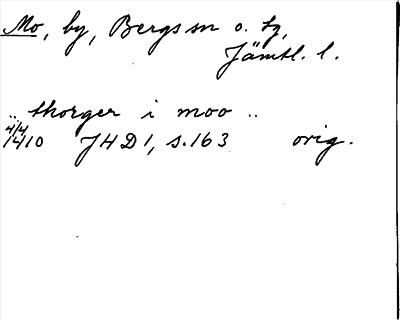 Mo, by, Bergs sn o. tg,
Jämtl. l.
.. thorger i moo ..
4/4
1410 JHD 1, s. 163 orig.